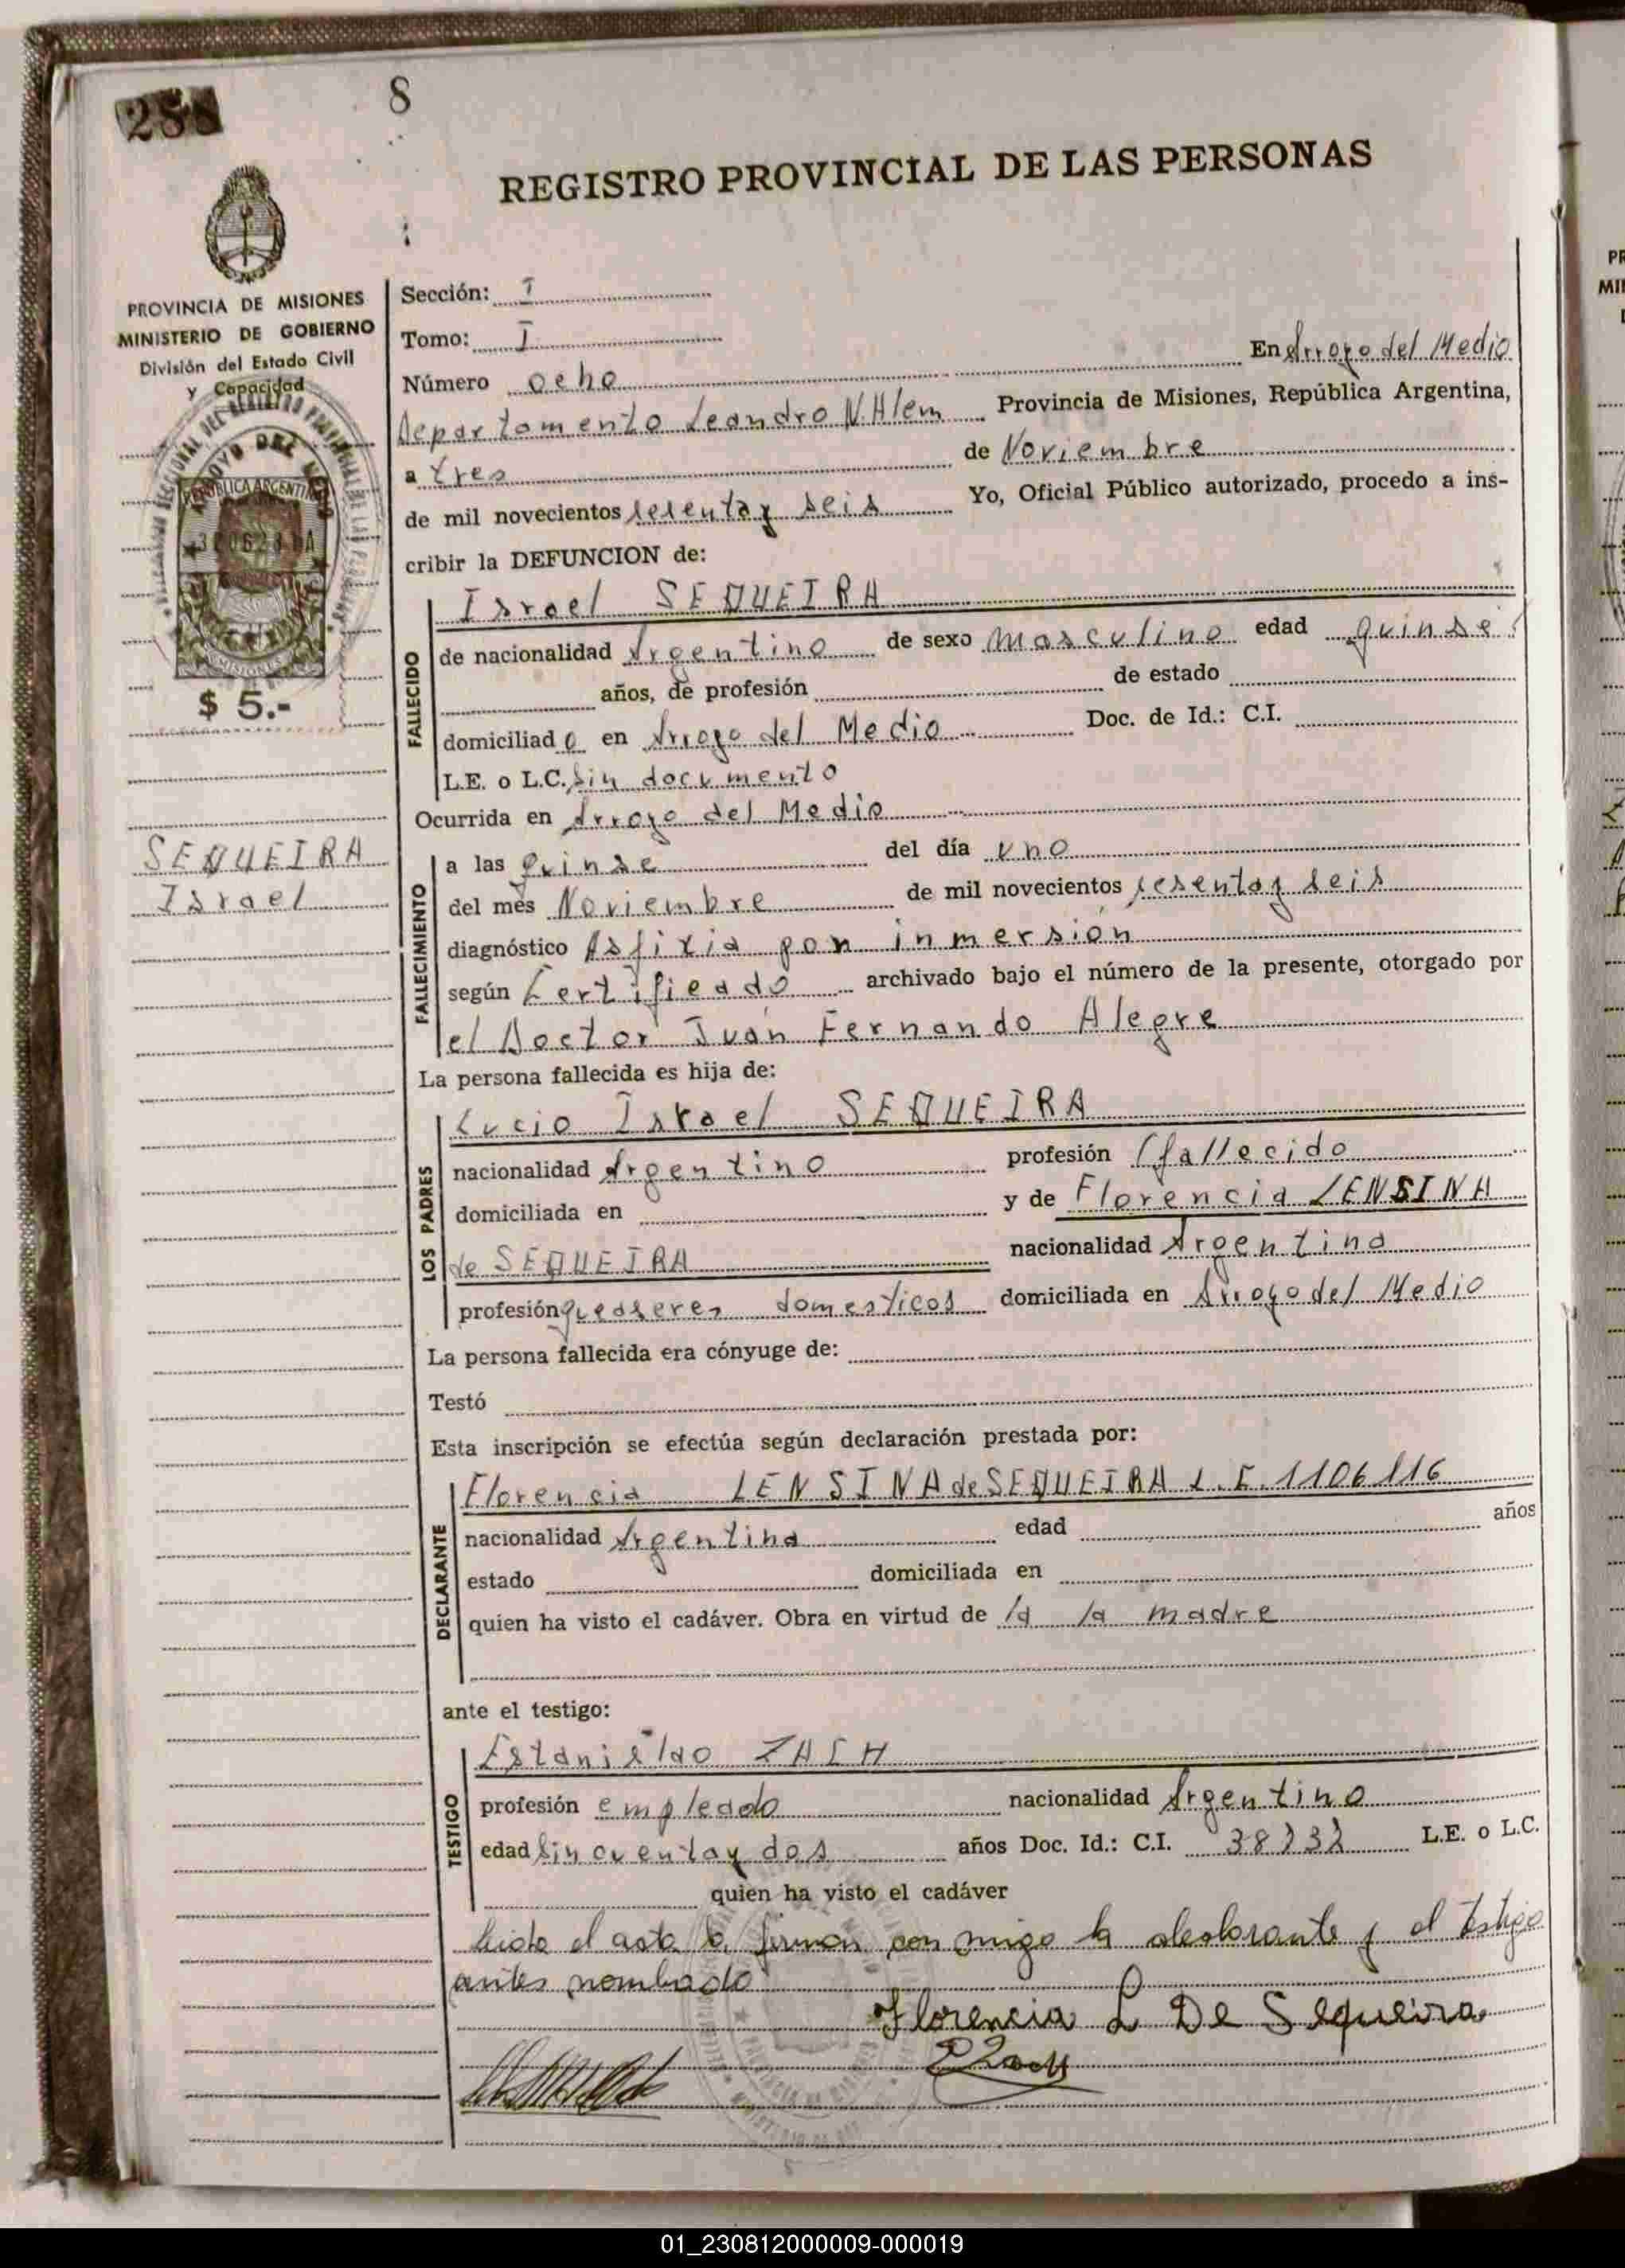 258
8
REGISTRO PROVINCIAL DE LAS PERSONAS
PROVINCIA DE MISIONES
MINISTERIO DE GOBIERNO
División del Estado Civil
y Capacidad
REPUBLICA ARGENTINA
MISIONES
$ 5.-
SEQUEIRA
Israel
Sección: I
Tomo: I
Número ocho En Arroyo del Medio
Departamento Leandro N. Alem Provincia de Misiones, República Argentina,
a tres de Noviembre
de mil novecientos sesenta y seis Yo, Oficial Público autorizado, procedo a ins-
cribir la DEFUNCION de:
FALLECIDO
Israel SEQUEIRA
de nacionalidad Argentino de sexo masculino edad quinse
años, de profesión de estado
domiciliado en Arroyo del Medio Doc. de Id.: C.I.
L.E. o L.C. Sin documento
Ocurrida en Arroyo del Medio
FALLECIMIENTO
a las quinse del día uno
del mes Noviembre de mil novecientos sesenta y seis
diagnóstico Asfixia por inmersión
según Certificado archivado bajo el número de la presente, otorgado por
el Doctor Juan Fernando Alegre
La persona fallecida es hija de:
LOS PADRES
Lucio Israel SEQUEIRA
nacionalidad Argentino profesión (fallecido
domiciliada en y de Florencia LENSINA
de SEQUEIRA nacionalidad Argentina
profesión queaseres domesticos domiciliada en Arroyo del Medio
La persona fallecida era cónyuge de:
Testó
Esta inscripción se efectúa según declaración prestada por:
DECLARANTE
Florencia LENSINA de SEQUEIRA L.C. 1106116
nacionalidad Argentina edad años
estado domiciliada en
quien ha visto el cadáver. Obra en virtud de la la madre
ante el testigo:
TESTIGO
Estanislao ZACH
profesión empleado nacionalidad Argentino
edad Sincuenta y dos años Doc. Id.: C.I. 38232 L.E. o L.C.
quien ha visto el cadáver
leida el acta la firman con migo la declarante y el testigo
antes nombrado
Florencia L De Sequeira
01_230812000009-000019